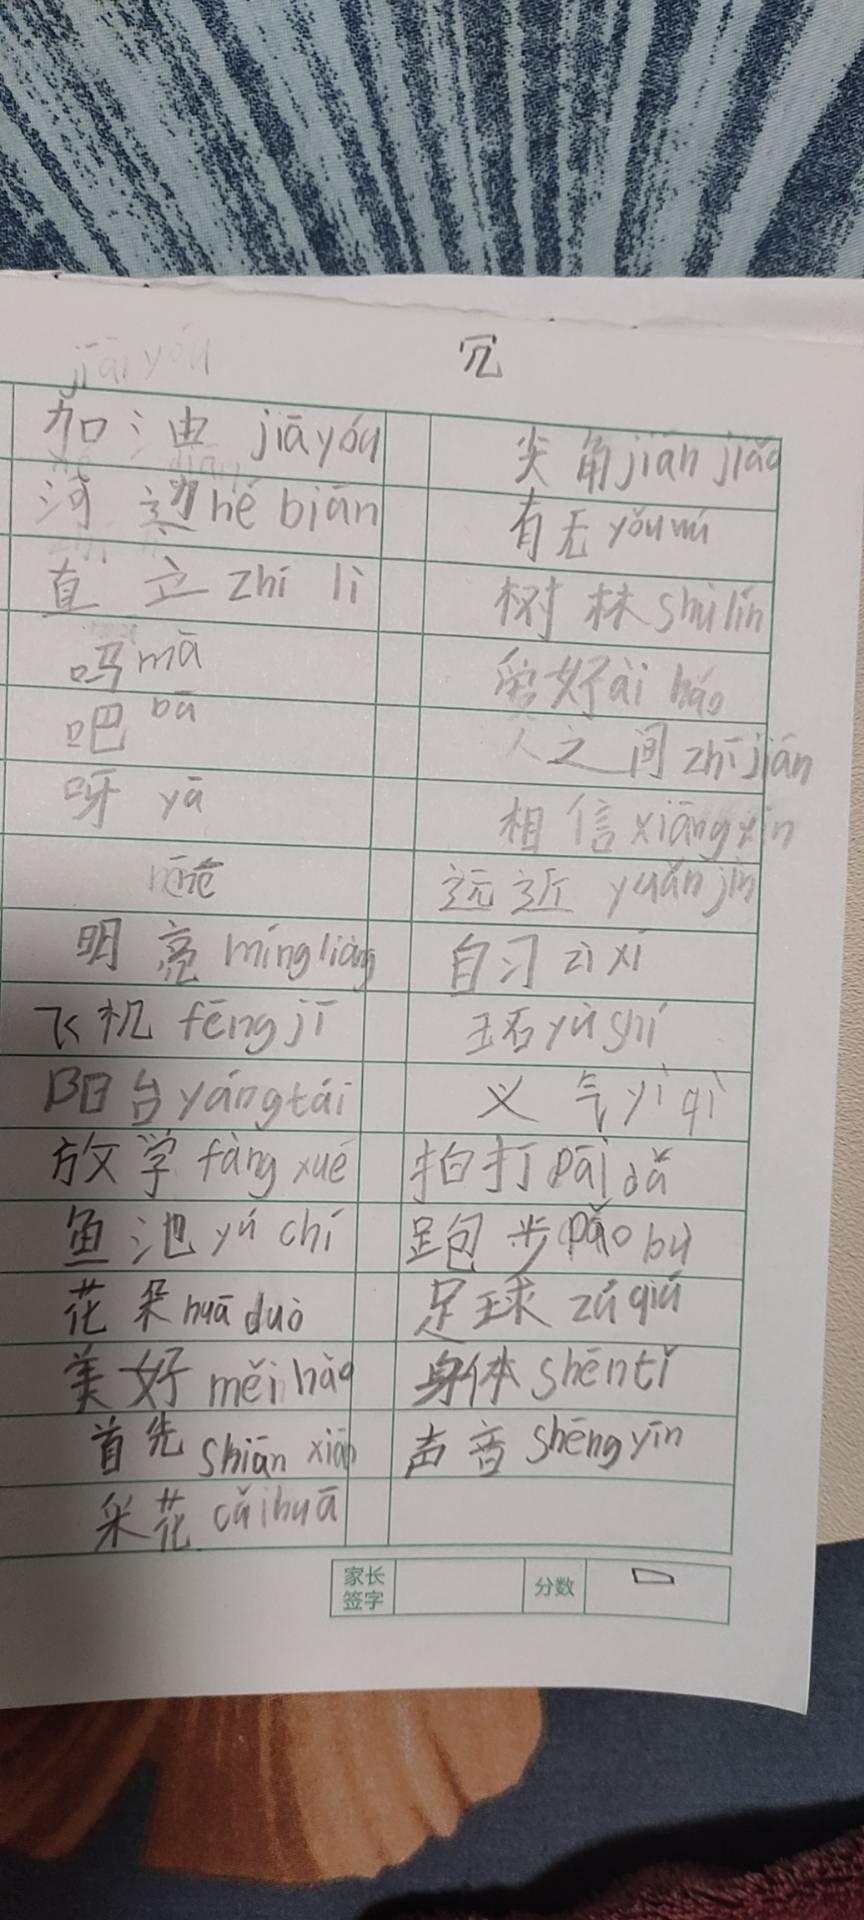 冗
jiāi yóu
加油 jiāyóu
河边 hé biān
直立 zhí lì
吗 mā
吧 bā
呀 yā
明亮 míng liàng
飞机 fēng jī
阳台 yáng tái
放学 fàng xué
鱼池 yú chí
花朵 huā duò
美好 měi hǎo
首先 shiān xiān
采花 cǎi huā
尖角 jiān jiǎo
有无 yǒu wú
树林 shù lín
爱好 ài hǎo
人之间 zhī jiān
相信 xiāng xìn
远近 yuǎn jìn
自习 zì xí
玉石 yù shí
义气 yì qì
拍打 pāi dǎ
跑步 pǎo bù
足球 zú qiú
身体 shēn tǐ
声音 shēng yīn
家长
签字
分数